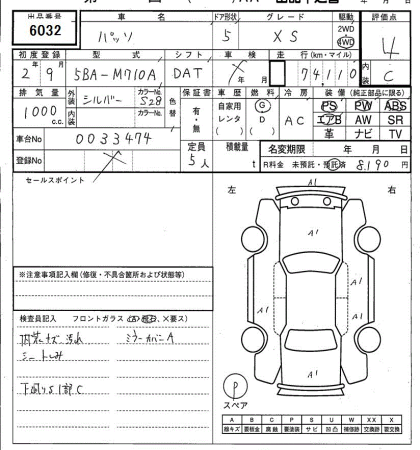 出品番号 車名 ドア形状 グレード 駆動 評価点
6032 パッソ 5 XS 2WD 4WD 4
初度登録 型式 シフト 車検 走行(km・マイル) 内装 C
2年 9月 5BA-M710A DAT ×年 月 74,110
排気量 外装 シルバー カラーNo. S28 色替 保証書 車歴 燃料 冷房 装備(純正部品に限る)
1000 c.c. 内装 カラーNo. 有・無 自家用 レンタ G D AC PS PW ABS
エアB AW SR
革 ナビ TV
車台No 0033474
定員 積載量 名変期限 年 月 日
登録No 5人 t R料金 未預託・預託済 8,190 円
セールスポイント
左 右
A1
A1
A1 A1
A1
※注意事項記入欄(修復・不具合箇所および状態等)
検査員記入 フロントガラス ×要ス)
内装キズ 汚れ ミラーカバーA
シートしみ
下回りS1部C
P
スペア
A B C P S U W X XX
線キズ 要板金 腐蝕 要塗装 サビ 凹凸 補修跡 要交換 交換済